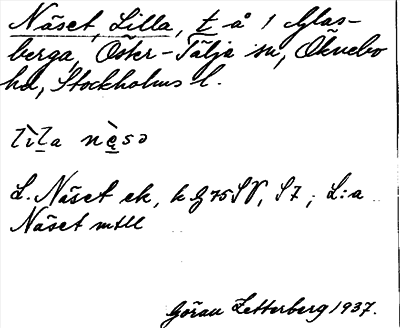 Näset, Lilla, t å 1 Glas-
berga, Öster-Tälje sn, Öknebo
hd, Stockholms l.
lìla nèsə
L. Näset ek, k G 75 SV, S 7; L:a
Näset mtll
Göran Zetterberg 1937.